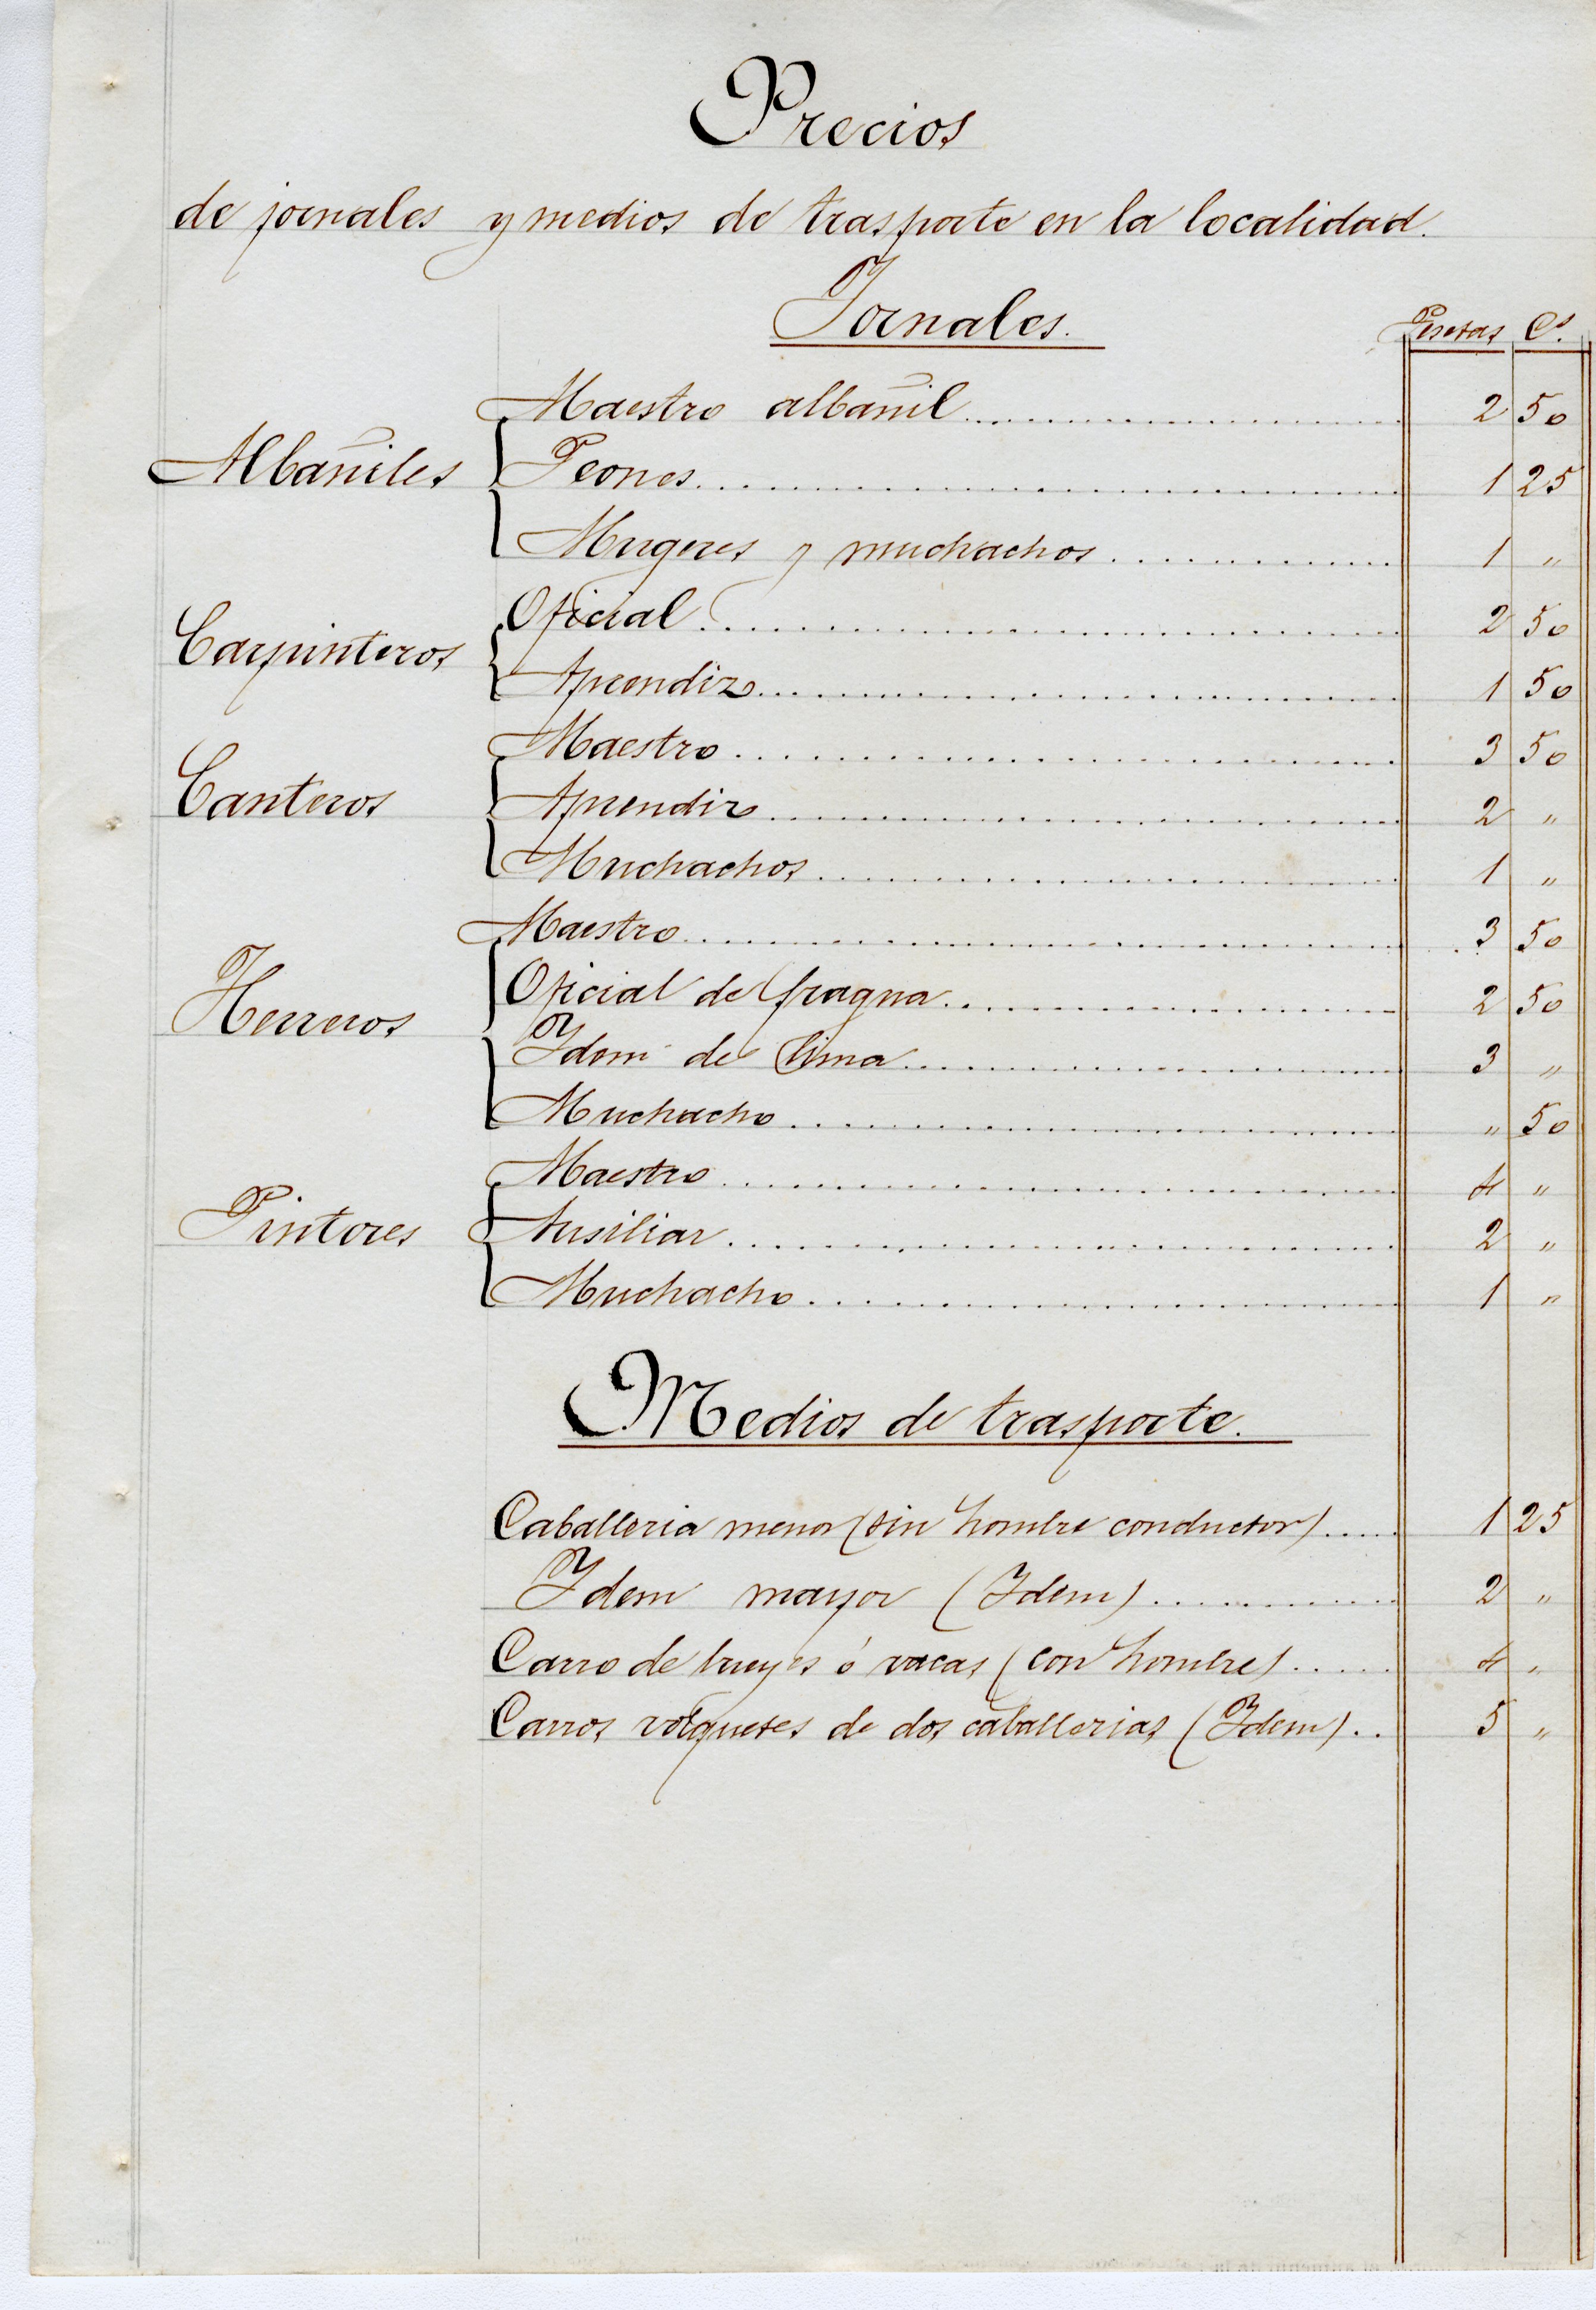 Precios
de jornales y medios de trasporte en la localidad.
Jornales.
Pesetas Cs.
Maestro albañil 2 50
Albañiles Peones 1 25
Mugeres y muchachos 1 "
Oficial 2 50
Carpinteros
Aprendiz 1 50
Maestro 3 50
Canteros Aprendiz 2 "
Muchachos 1 "
Maestro 3 50
Oficial de fragua 2 50
Herreros
Idem de lima 3 "
Muchacho " 50
Maestro 4 "
Pintores Ausiliar 2 "
Muchacho 1 "
Medios de trasporte.
Caballeria menor (sin hombre conductor) 1 25
Idem mayor (Idem) 2 "
Carro de bueyes ó vacas (con hombre) 4 "
Carros volquetes de dos caballerias (Idem) 5 "